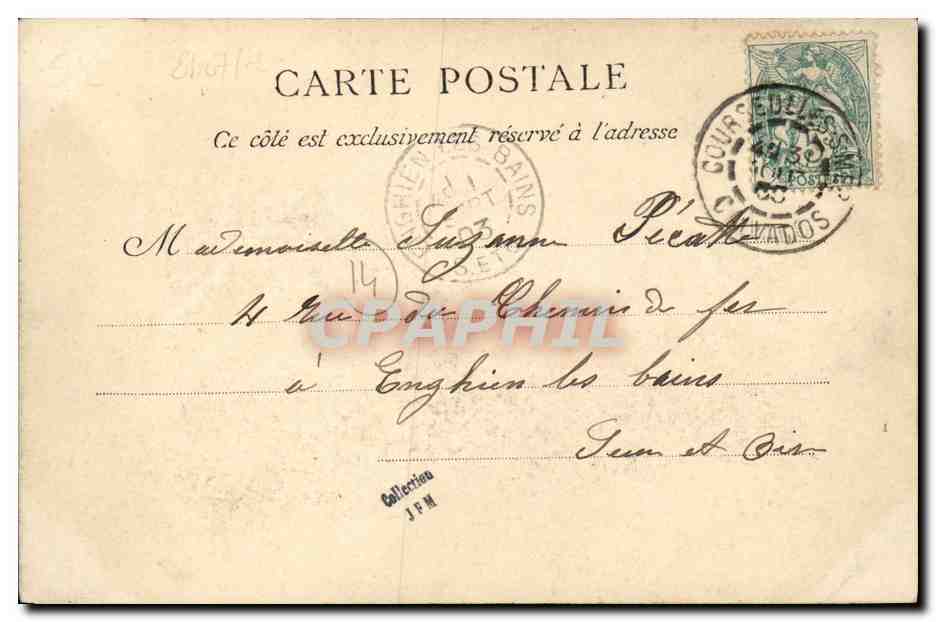 CARTE POSTALE
Ce côté est exclusivement réservé à l'adresse
ENGHIEN LES BAINS
SEPT
03
S. ET O
COURSEULLES S MER
CALVADOS
POSTES
Mademoiselle Suzanne
14
4 rue du Chemin de fer
CPAPHIL
à Enghien les bains
Seine et Oise
Collection
JFM